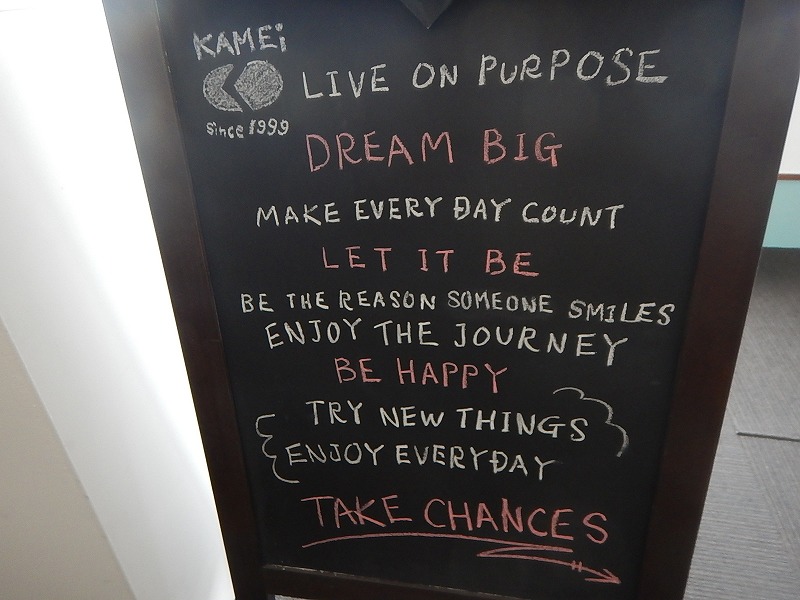 KAMEi
Since 1999
LIVE ON PURPOSE
DREAM BIG
MAKE EVERY DAY COUNT
LET IT BE
BE THE REASON SOMEONE SMILES
ENJOY THE JOURNEY
BE HAPPY
TRY NEW THINGS
ENJOY EVERYDAY
TAKE CHANCES